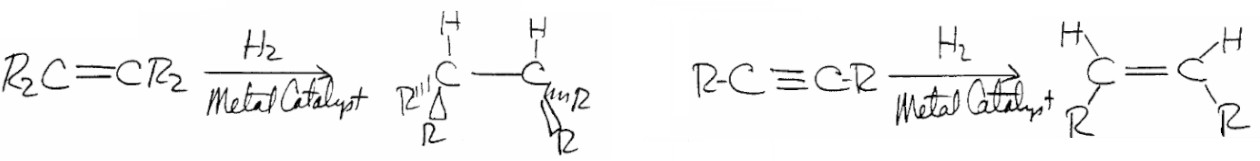 R₂C=CR₂ H₂ Metal Catalyst H H R''' C — C '''R R R
R-C≡C-R H₂ Metal Catalyst H H C=C R R